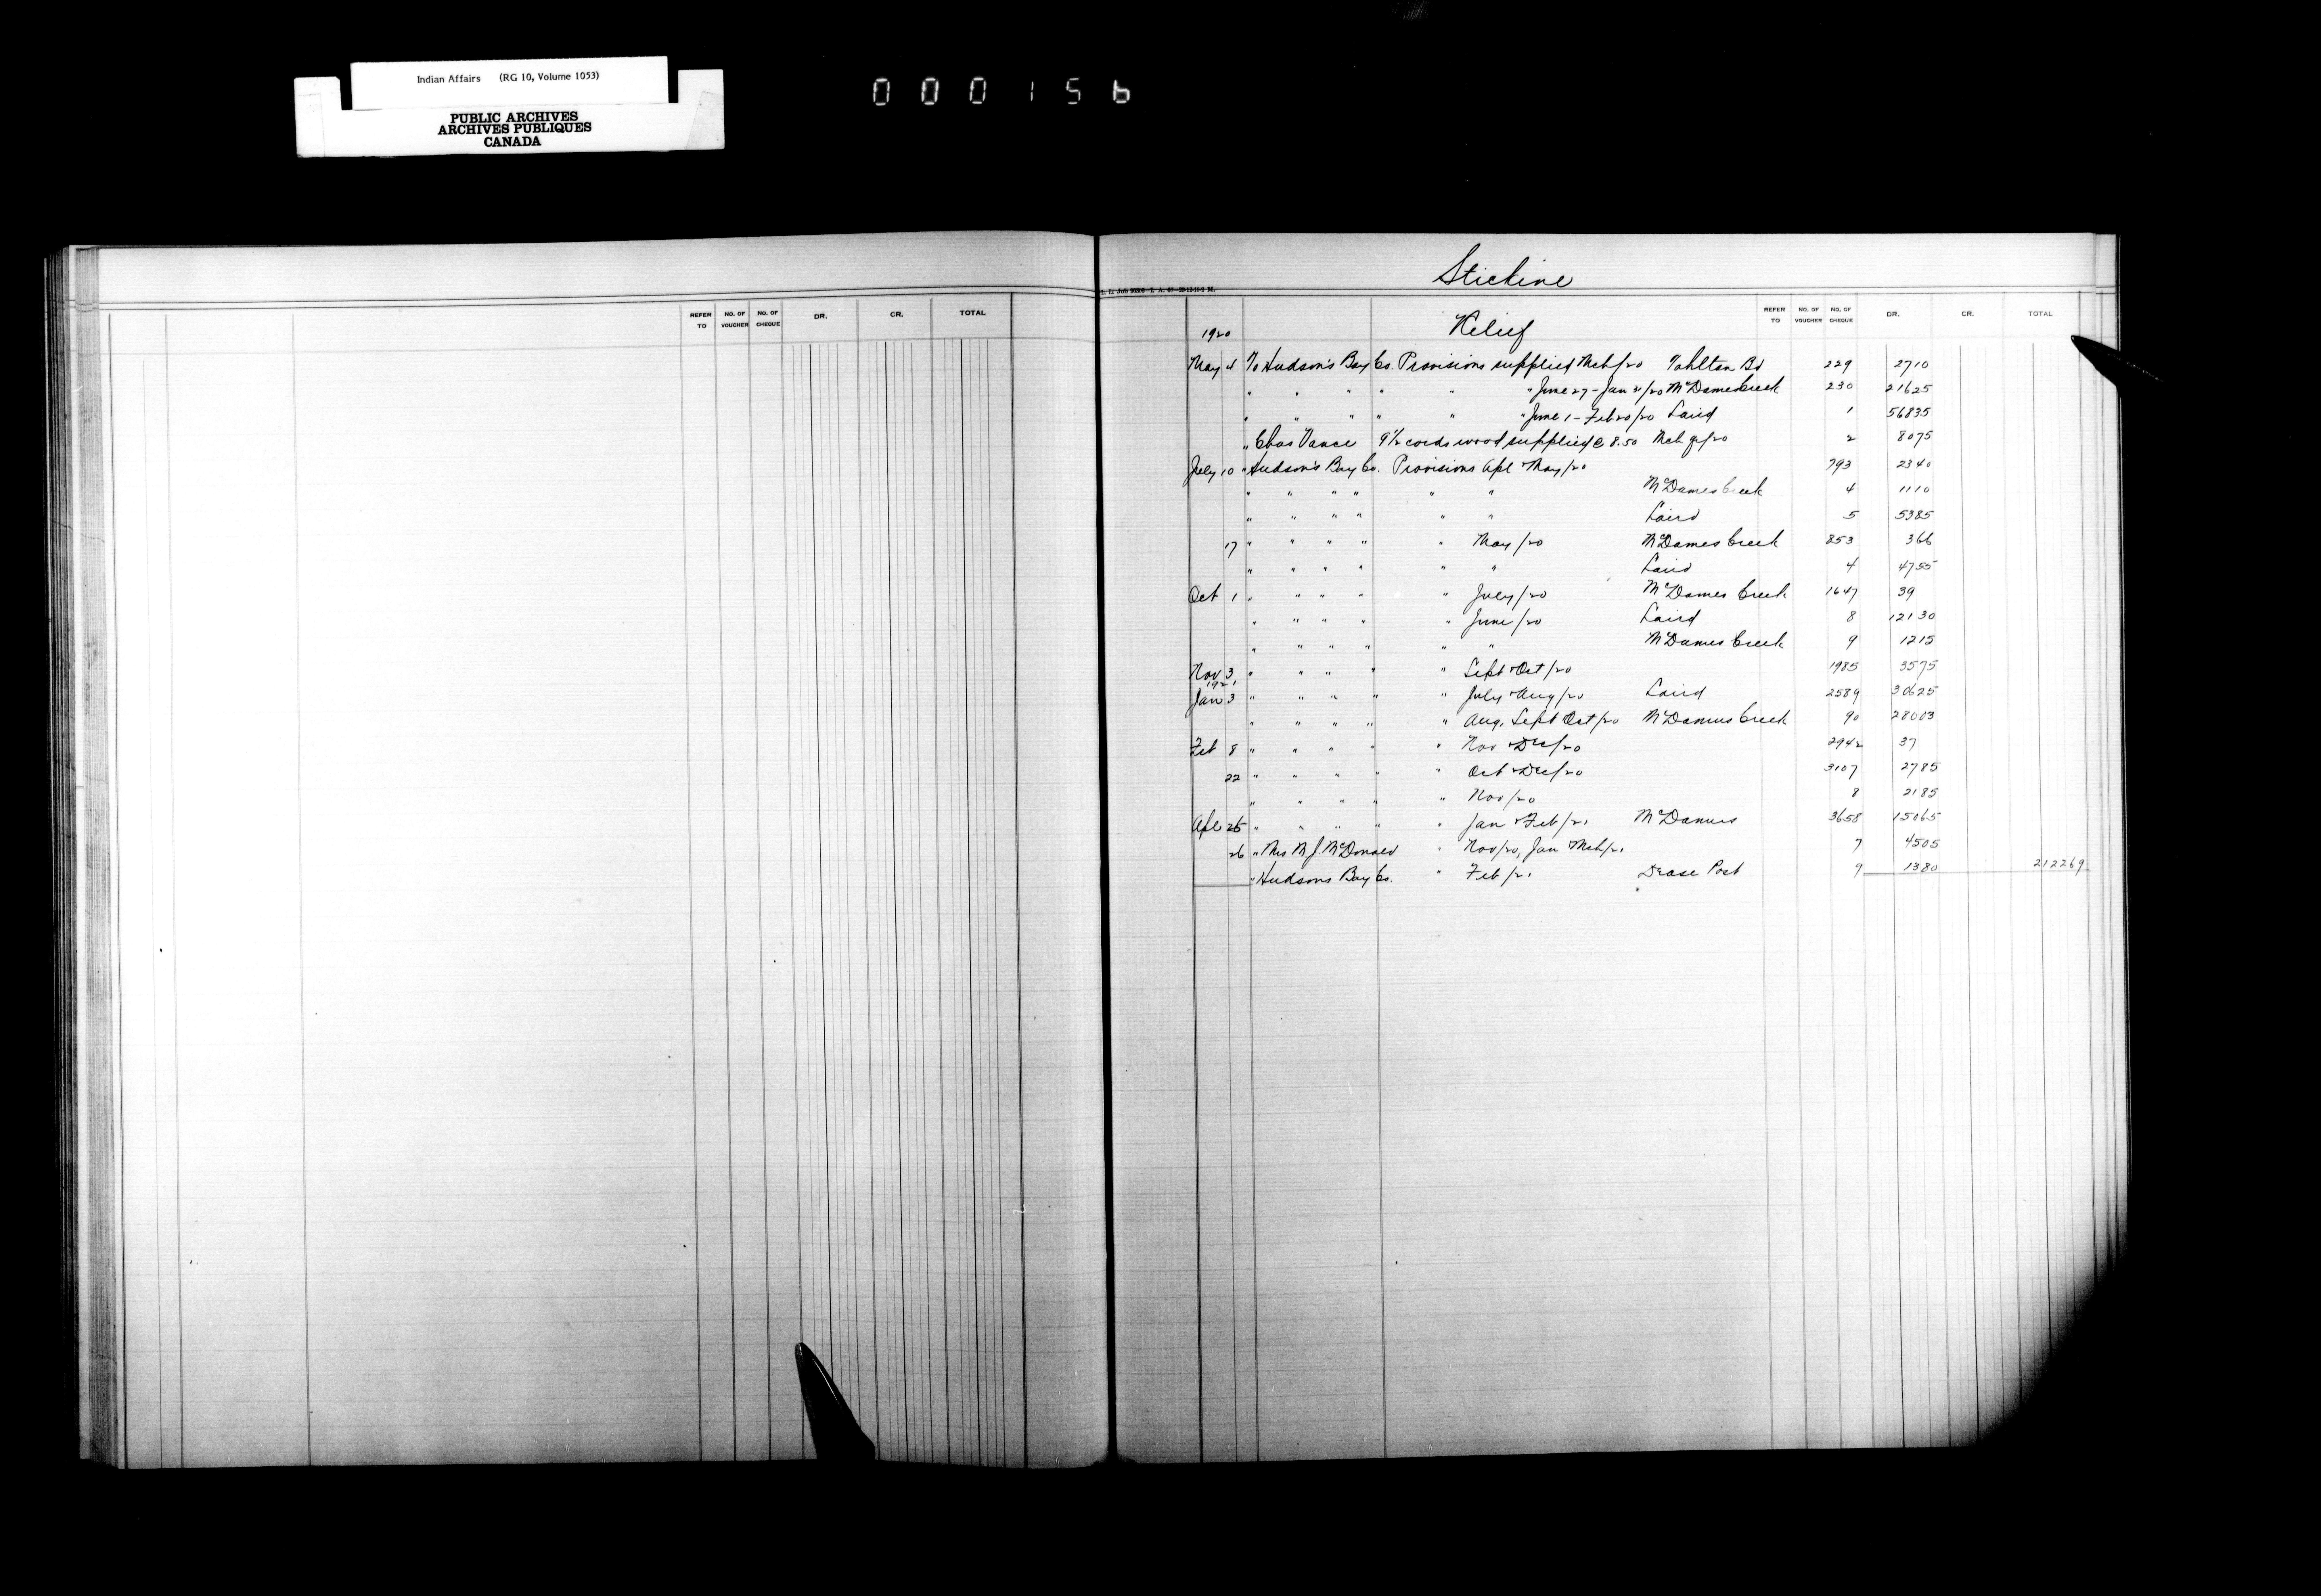 Indian Affairs (RG 10, Volume 1053)
PUBLIC ARCHIVES
ARCHIVES PUBLIQUES
CANADA
000156
Stickine
REFER TO NO. OF VOUCHER NO. OF CHEQUE DR. CR. TOTAL
REFER TO NO. OF VOUCHER NO. OF CHEQUE DR. CR. TOTAL
1920 Relief
May 4 To Hudson's Bay Co. Provisions supplied Mch/20 Tahltan Bd 229 2710
" " " " " " June 27 - Jan 31/20 McDames Creek 230 21625
" " " " " " June 1 - Feb 20/20 Laird 1 56835
" Chas Vance 9 1/2 cords wood supplied @ 8.50 Mch qr/20 2 8075
July 10 " Hudson's Bay Co. Provisions Apl & May/20 793 2340
" " " " " " McDames Creek 4 1110
" " " " " " Laird 5 5385
17 " " " " " May/20 McDames Creek 853 366
" " " " " " Laird 4 4755
Oct 1 " " " " " July/20 McDames Creek 1647 39
" " " " " June/20 Laird 8 12130
" " " " " " McDames Creek 9 1215
Nov 3 " " " " " Sept & Oct/20 1985 3575
1921
Jan 3 " " " " " July & Aug/20 Laird 2589 30625
" " " " " Aug, Sept Oct/20 McDames Creek 90 28003
Feb 8 " " " " " Nov & Dec/20 2942 37
22 " " " " " Oct & Dec/20 3107 2785
" " " " " Nov/20 8 2185
Apl 25 " " " " " Jan & Feb/21 McDames 3658 15065
26 " Mrs M. J. McDonald " Nov/20, Jan & Mch/21 7 4505
" Hudsons Bay Co. " Feb/21 Dease Post 9 1380 212269